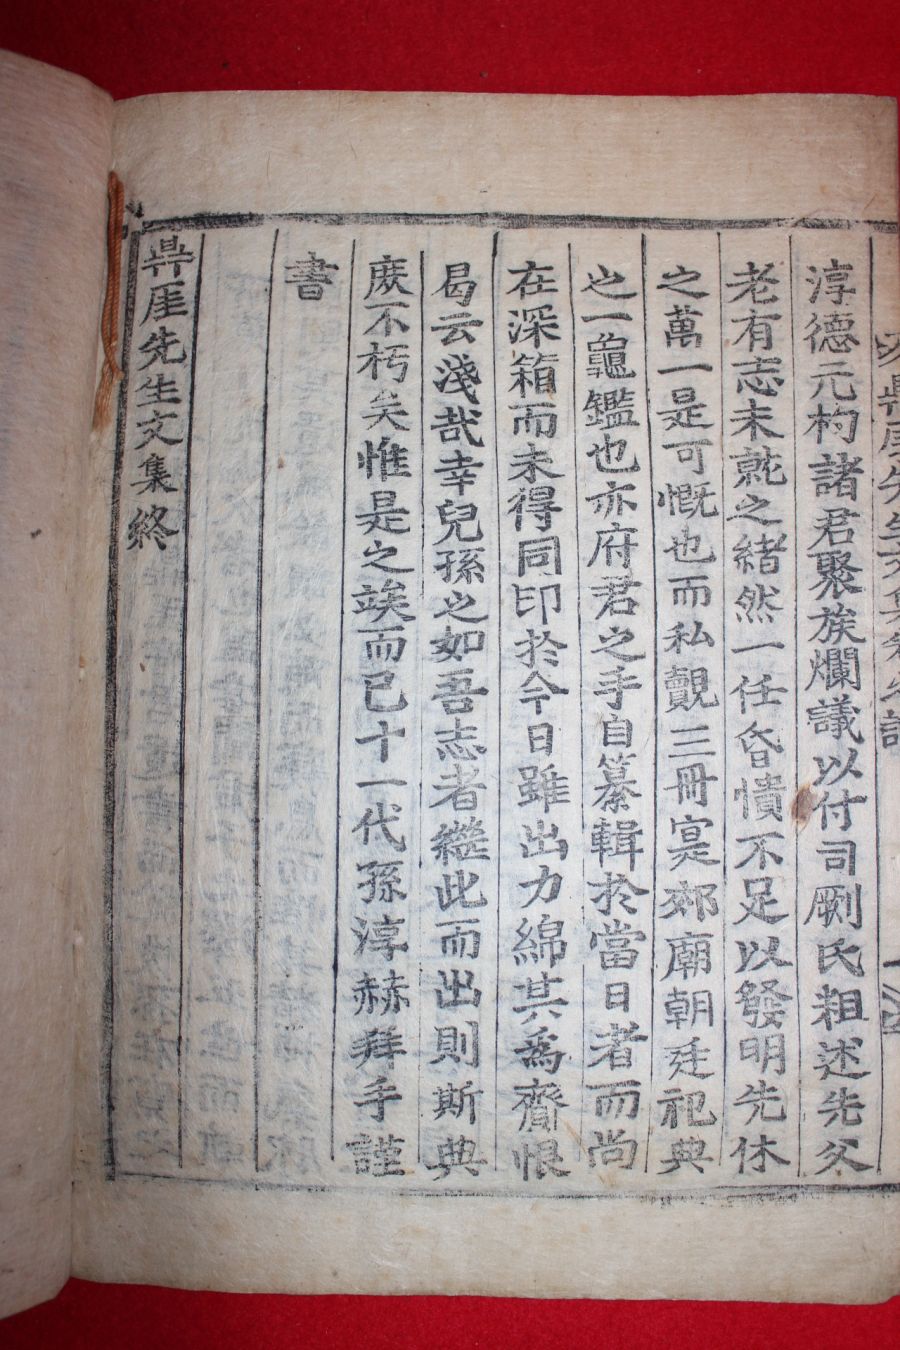 淳德元杓諸君聚族爛議以付司劂氏粗述先父
老有志未就之緖然一任昏憒不足以發明先休
之萬一是可慨也而私覿三冊寔郊廟朝廷祀典
之一龜鑑也亦府君之手自纂輯於當日者而尚
在深箱而未得同印於今日雖出力綿其爲齎恨
曷云淺哉幸兒孫之如吾志者繼此而出則斯典
庶不朽矣惟是之竢而已十一代孫淳赫拜手謹
書
鼎厓先生文集終